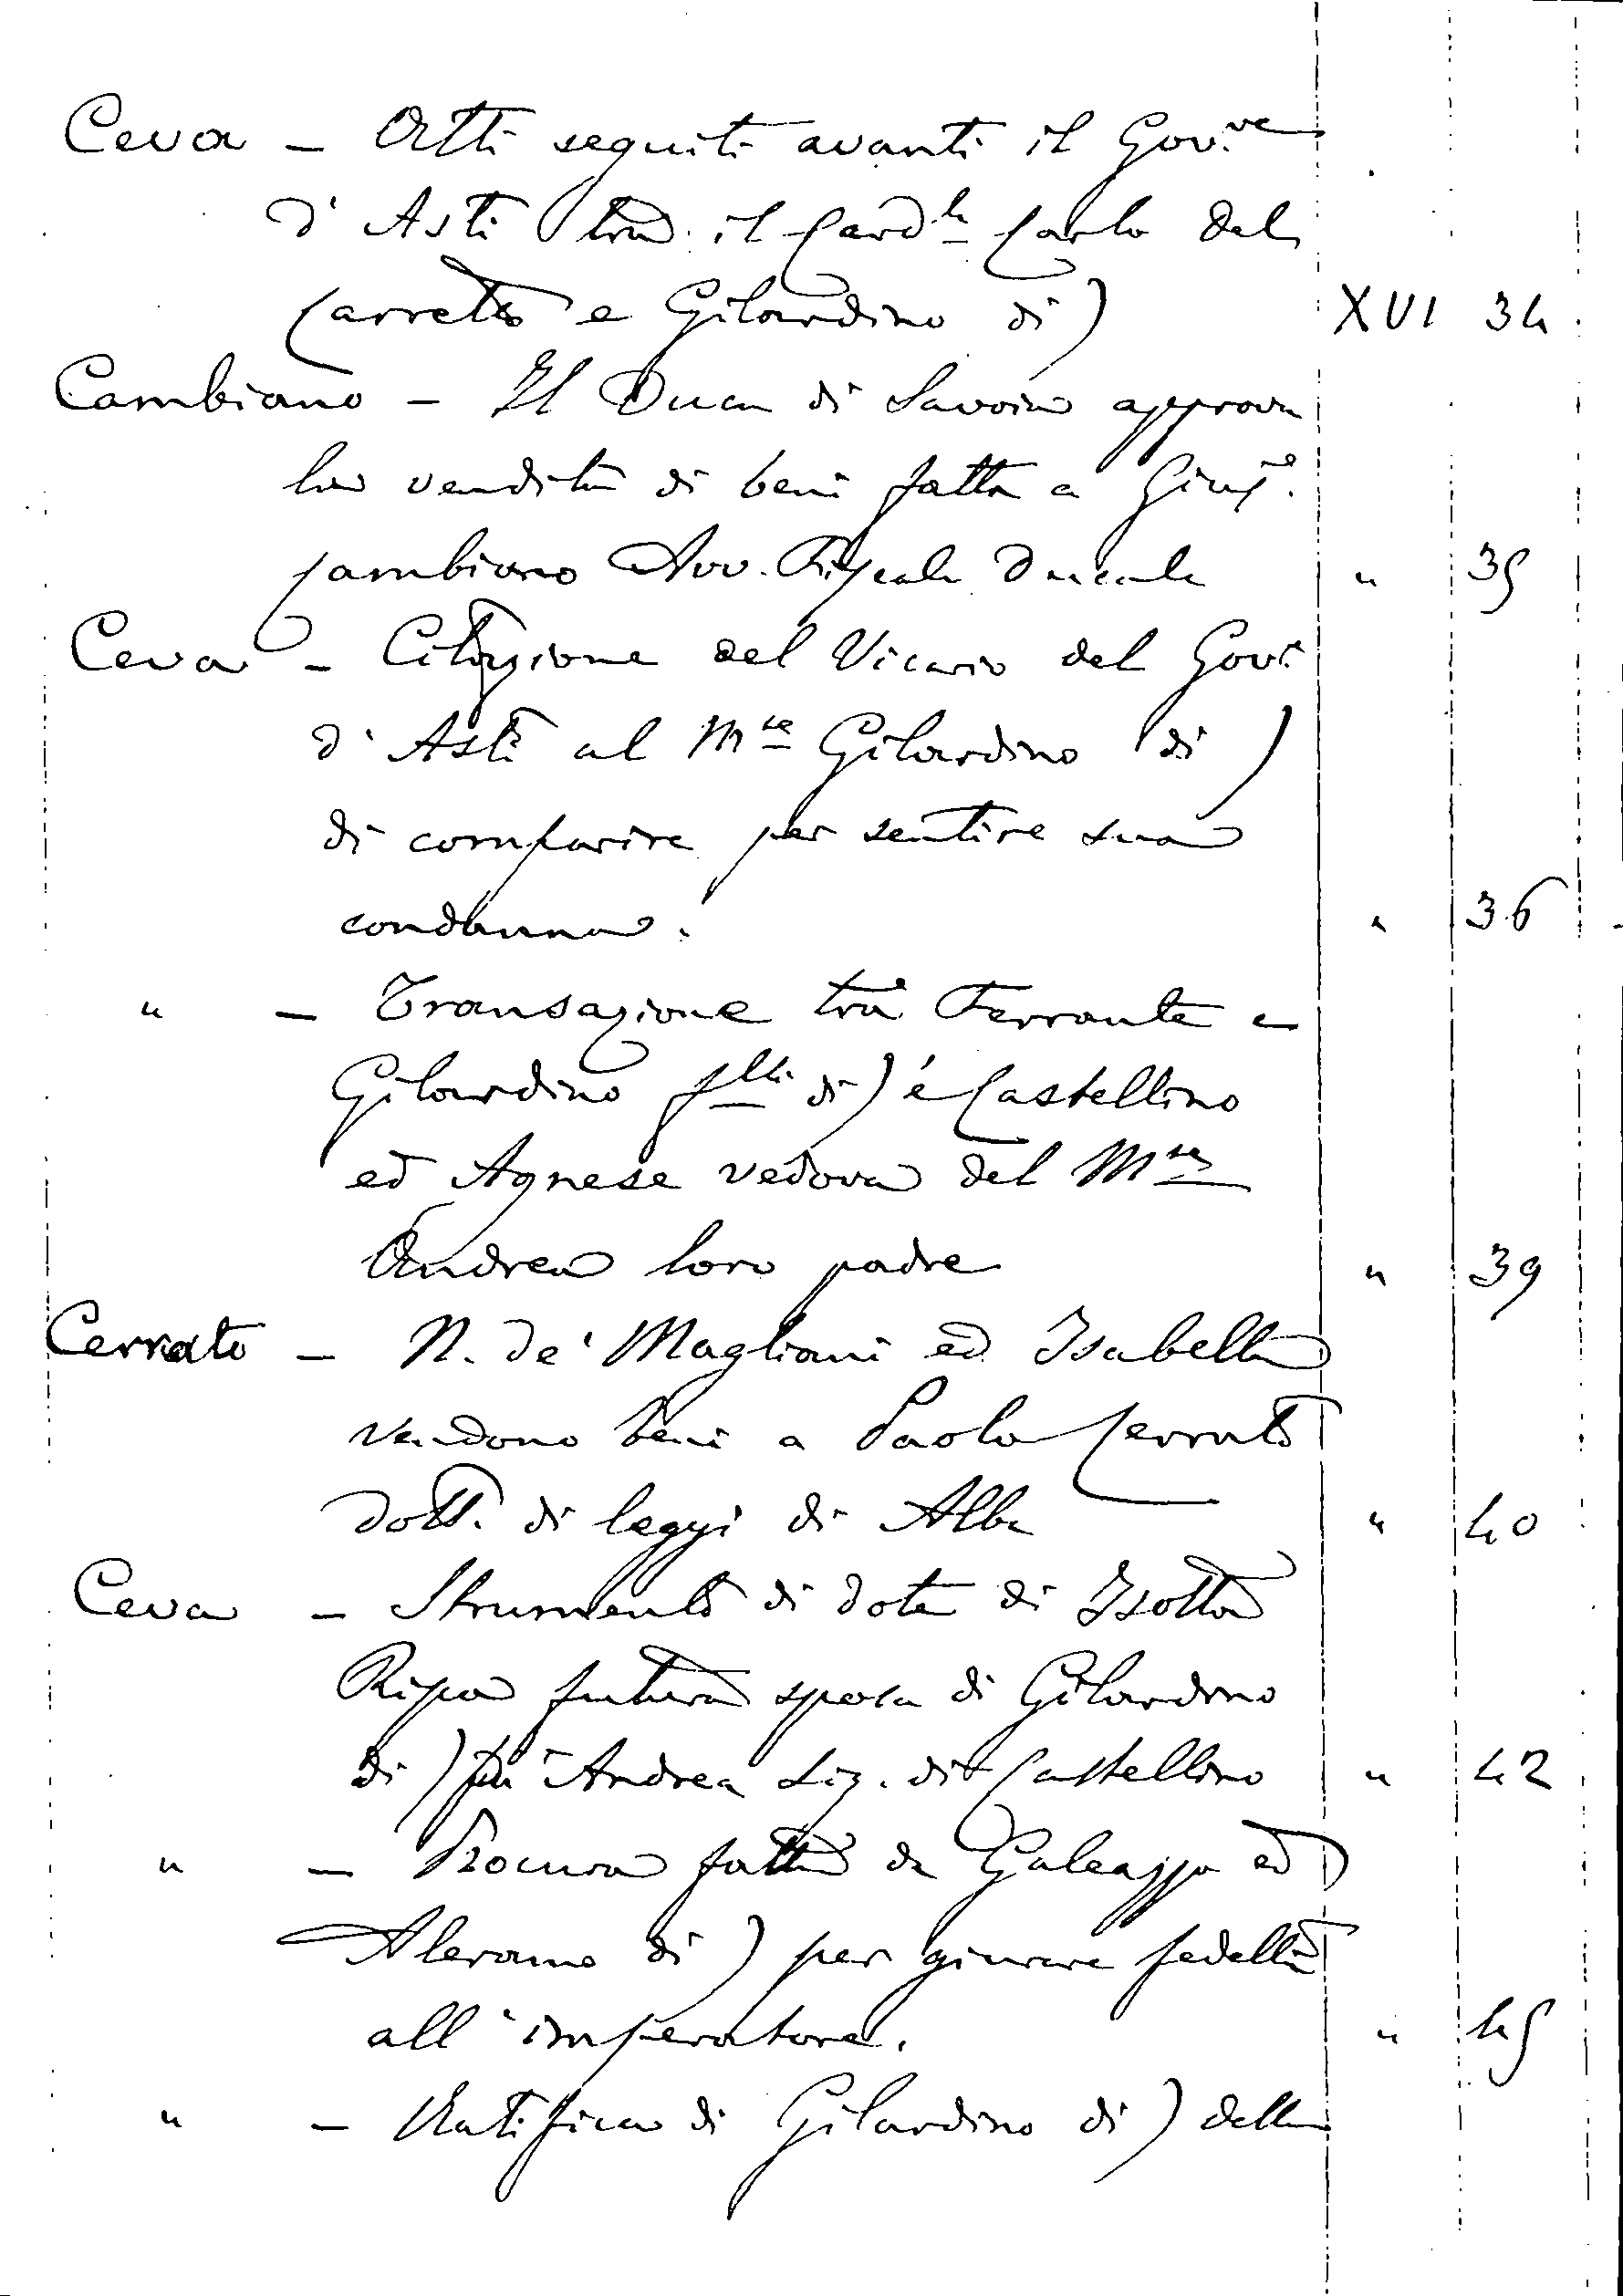 Ceva - Atti seguiti avanti il Gov.re
d'Asti tra il Card.le Carlo del
Carretto e Gilardino di ) XVI 34
Cambiano - Il Duca di Savoia approva
la vendita di beni fatta a Gius.e
Cambiano Avv. Fiscale Ducale " 35
Ceva - Citazione del Vicario del Gov.e
d'Asti al M.se Gilardino di )
di comparire per sentire sua
condanna. " 36
" - Transazione tra Ferrante e
Gilardino f.lli di ) e Castellino
ed Agnese vedova del M.se
Andrea loro padre " 39
Cerrato - N. de' Magliani ed Isabella
vendono beni a Paolo Cerrato
Dott. di leggi di Alba " 40
Ceva - Strumento di dote di Isotta
Ripa futura sposa di Gilardino
di ) fu Andrea Sig. di Castellino " 42
" - Procura fatta da Galeazzo ed
Aleramo di ) per giurare fedeltà
all'imperatore. " 45
" - Ratifica di Gilardino di ) della